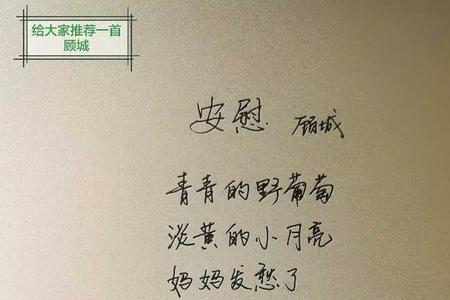 给大家推荐一首
顾城
安慰 顾城
青青的野葡萄
淡黄的小月亮
妈妈发愁了